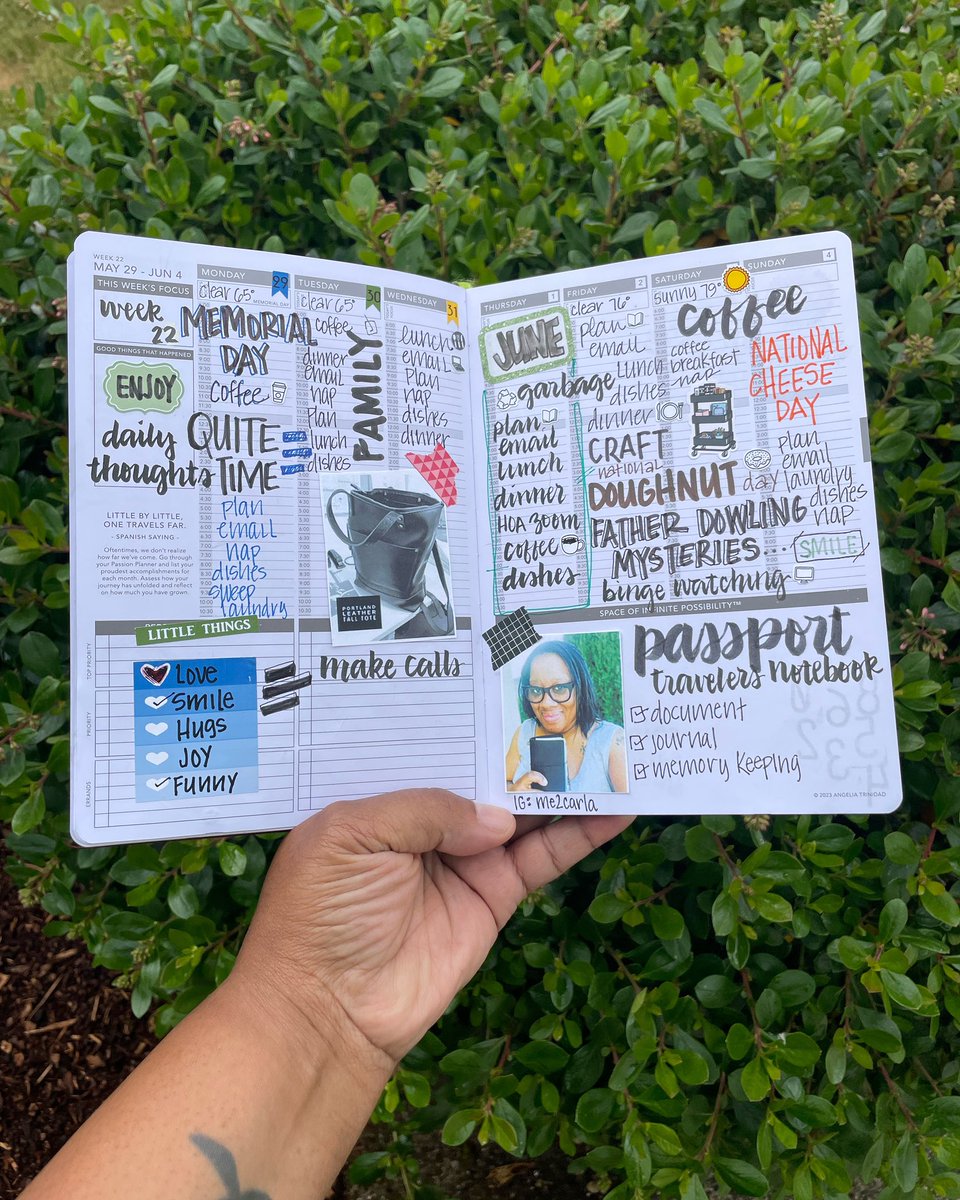 WEEK 22
MAY 29 - JUN 4
THIS WEEK'S FOCUS
week
22
GOOD THINGS THAT HAPPENED
ENJOY
daily
thoughts
LITTLE BY LITTLE,
ONE TRAVELS FAR.
- SPANISH SAYING -
Oftentimes, we don't realize
how far we've come. Go through
your Passion Planner and list your
proudest accomplishments for
each month. Assess how your
journey has unfolded and reflect
on how much you have grown.
MONDAY
29
clear 65°
MEMORIAL DAY
MEMORIAL
DAY
Coffee
QUITE
TIME
plan
email
nap
dishes
sweep
laundry
TUESDAY
30
clear 65°
coffee
dinner
email
nap
plan
lunch
dishes
FAMILY
WEDNESDAY
31
lunch
email
plan
nap
dishes
dinner
PORTLAND
LEATHER
TALL TOTE
LITTLE THINGS
TOP PRIORITY
PRIORITY
ERRANDS
Love
Smile
Hugs
JOY
Funny
make calls
THURSDAY
1
JUNE
garbage
plan
email
lunch
dinner
HOA zoom
coffee
dishes
FRIDAY
2
clear 76°
plan
email
lunch
dishes
dinner
CRAFT
national
DOUGHNUT
day
FATHER DOWLING
MYSTERIES...
binge watching
SATURDAY
sunny 79°
coffee
coffee
breakfast
nap
SUNDAY
4
NATIONAL
CHEESE
DAY
plan
email
laundry
dishes
nap
SMILE
SPACE OF INFINITE POSSIBILITY™
passport
travelers notebook
document
journal
memory keeping
IG: me2carla
© 2023 ANGELIA TRINIDAD